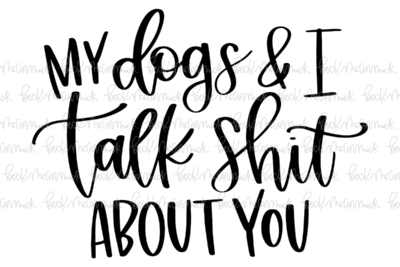 MY dogs & I
talk shit
ABOUT YOU